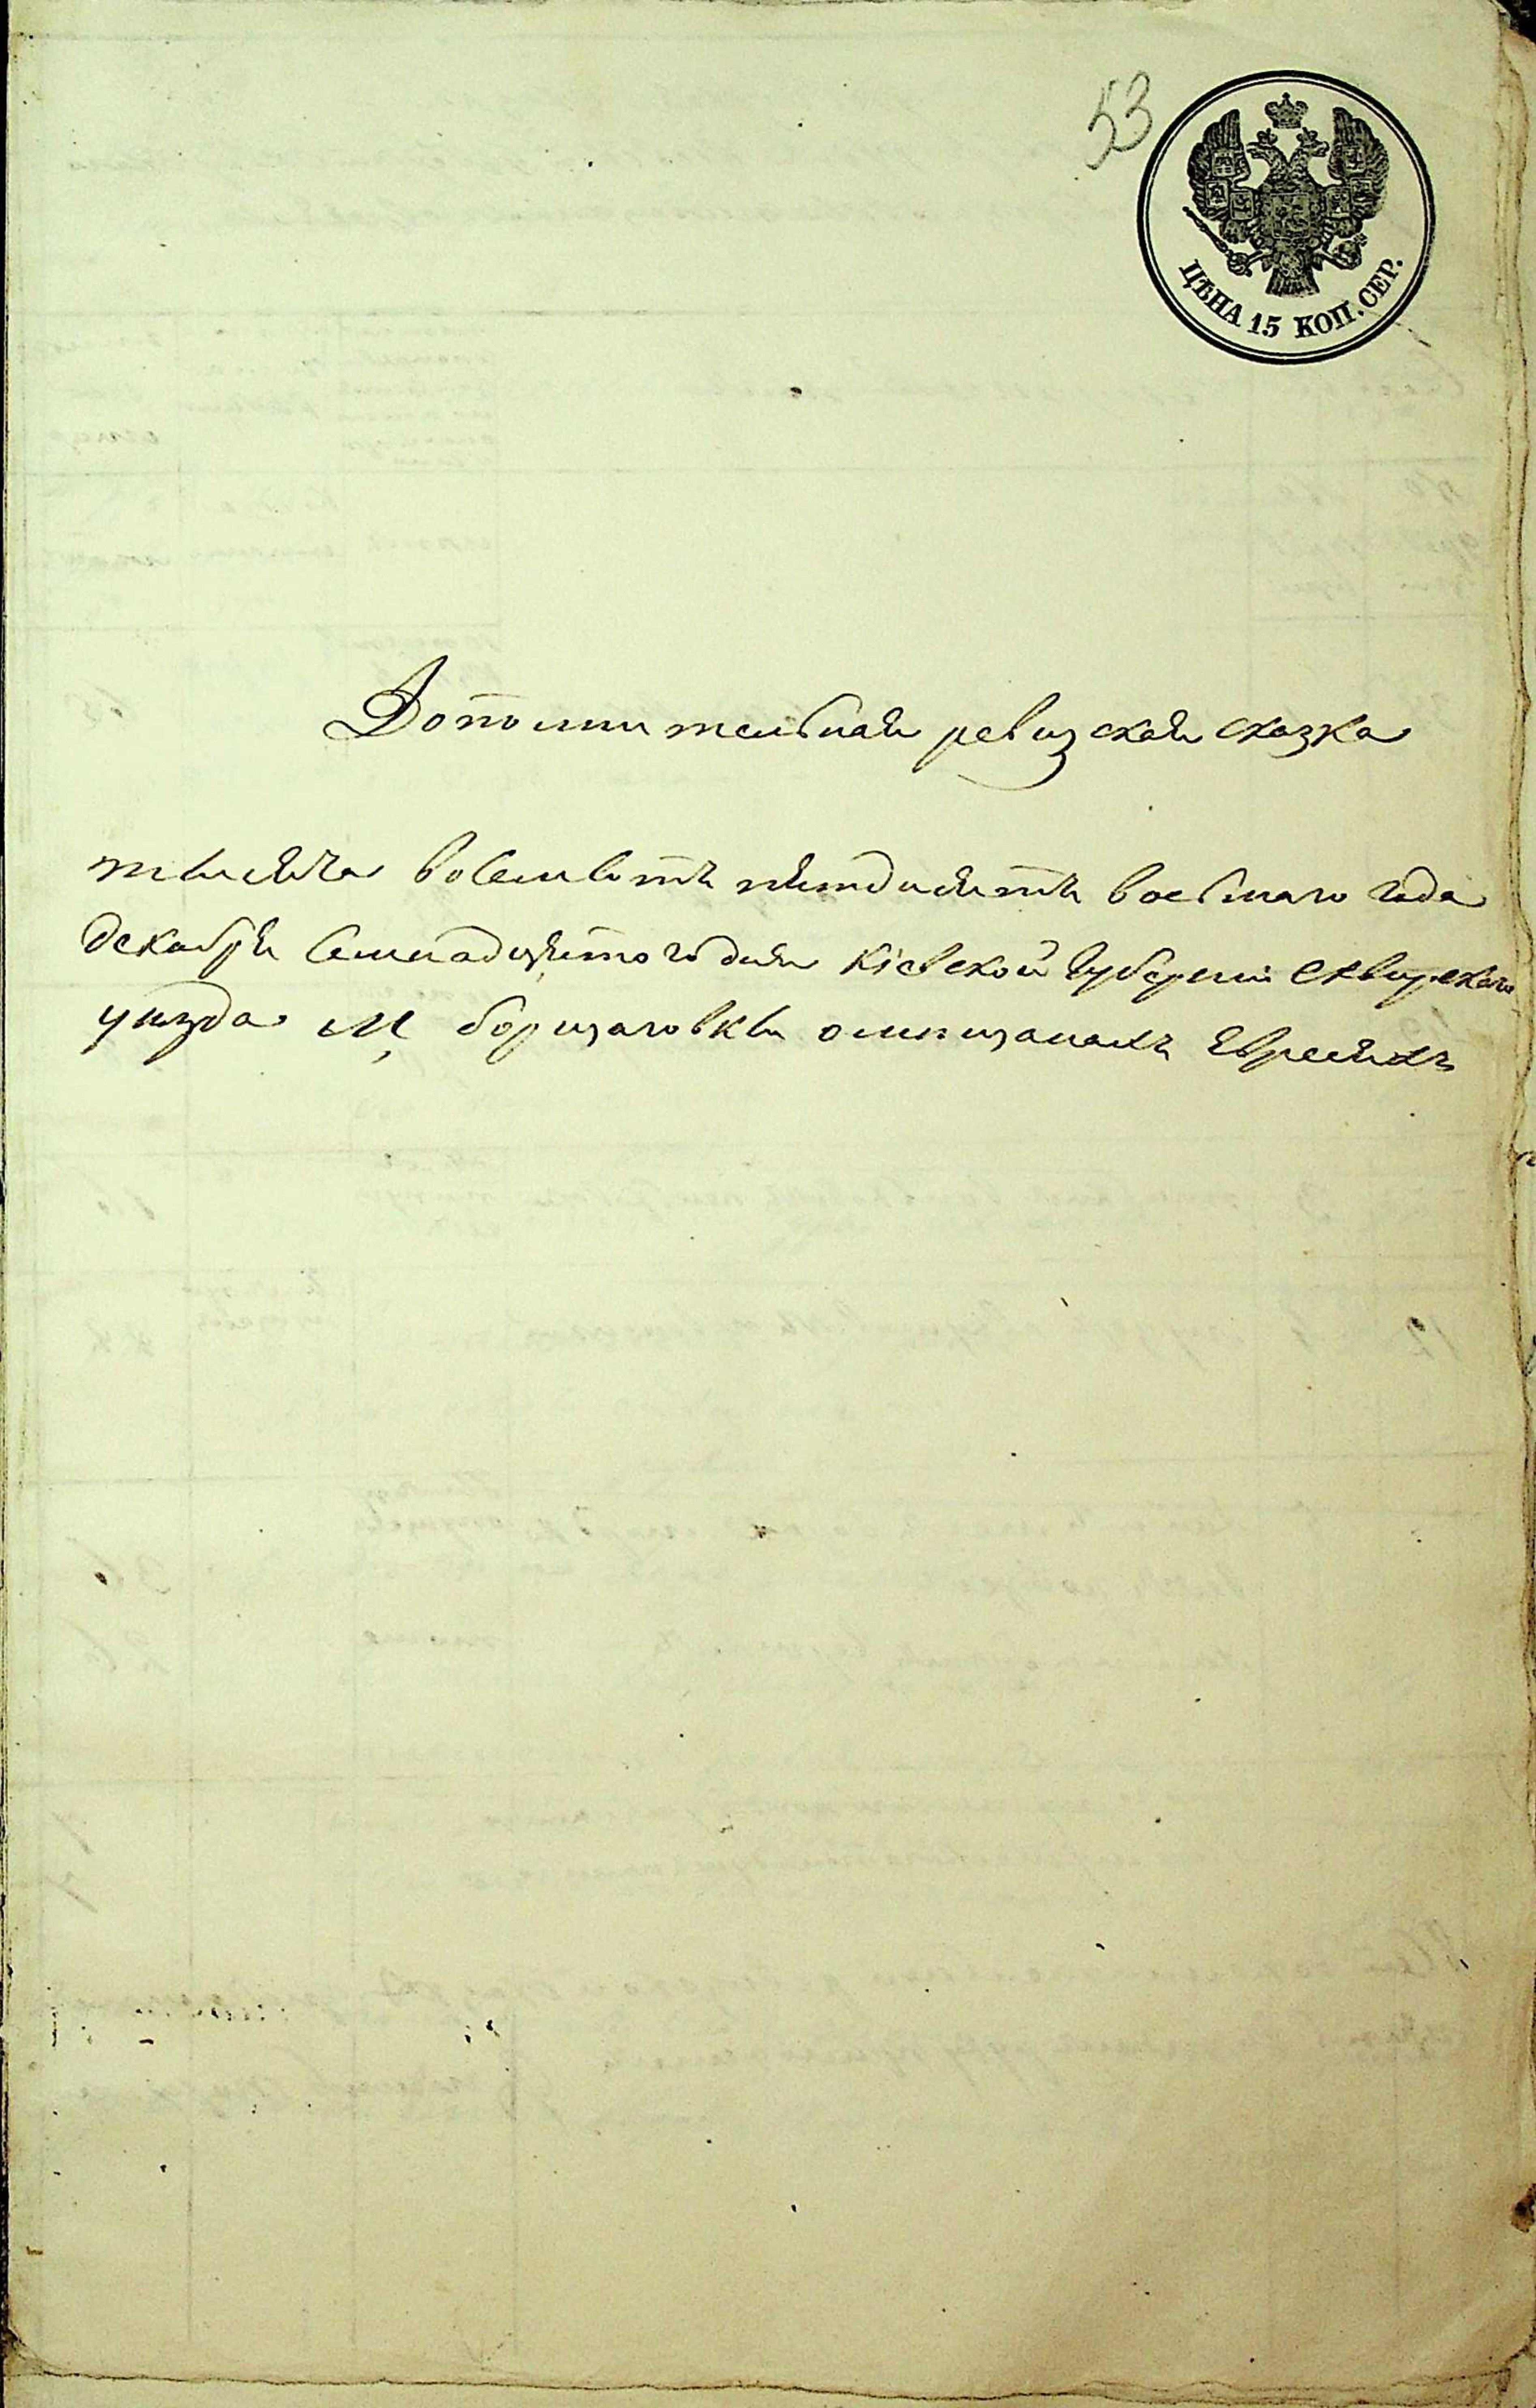 53
ЦѢНА 15 КОП. СЕР.
Дополнительная ревизская сказка
тысяча восемьсотъ пятдисятъ восьмаго года
декабря семнадцятого дня Кіевской Губерніи Сквирскаго
уизда М борщаговки омищанахъ Евреяхъ